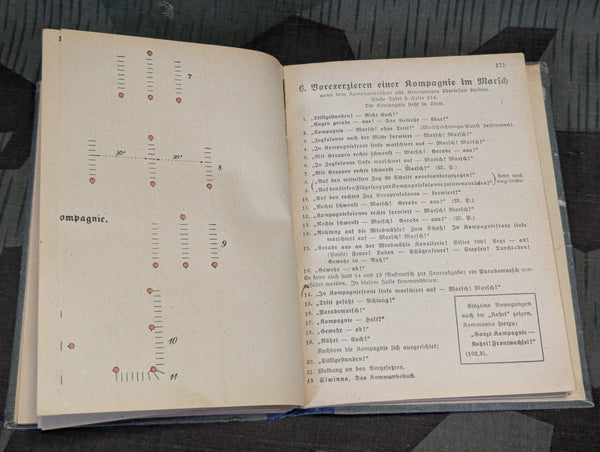 1
7
30×
30×
8
ompagnie.
9
10
11
175
6. Vorexerzieren einer Kompagnie im Marsch
wenn dem Kompagnieführer alle Bewegungen überlassen bleiben.
Siehe Tafel b Seite 174.
Die Kompagnie steht in Linie.
1. „Stillgestanden! — Richt Euch!“
Augen gerade — aus! — Das Gewehr — über!“
2. „Kompagnie — Marsch! ohne Tritt!“ (Marschrichtungs-Punkt bestimmen).
3. „Zugkolonne nach der Mitte formiert — Marsch! Marsch!“
4. „In Kompagniefront links marschiert auf — Marsch! Marsch!“
5. „Mit Gruppen rechts schwenkt — Marsch! Gerade — aus!“
6. „In Zugkolonne links marschiert auf — Marsch! Marsch!“
7. „Mit Gruppen rechts schwenkt — Marsch!“ (M. P.)
8. „Auf den mittelsten Zug 30 Schritt auseinandergezogen!“
9. „Auf den linken Flügelzug zur Kompagniekolonne zusammenziehen!“
kann auch wegbleiben
10. „Auf den rechten Zug Gruppenkolonne — formiert!“
11. „Rechts schwenkt — Marsch! Gerade — aus!“ (M. P.)
12. „Kompagniekolonne rechts formiert — Marsch! Marsch!“
13. „Rechts schwenkt — Marsch! Gerade — aus!“ (M. P.)
14. „Richtung auf die Windmühle! Herr Schuh! In Kompagniefront links
marschiert auf — Marsch! Marsch!“
15. „Gerade aus an der Windmühle Kavallerie! Visier 700! Legt — an!
(Pause) Feuer! Laden — Schützenfeuer! — Stopfen! Durchladen!
Gewehr in — Ruh!“
16. „Gewehr — ab!“
Es kann auch statt 14 und 15 (Aufmarsch zur Feuerabgabe) ein Parademarsch vor-
geführt werden. In diesem Falle kommandieren:
14. „In Kompagniefront links marschiert auf — Marsch! Marsch!“
15. „Tritt gefaßt — Achtung!“
16. „Parademarsch!“
17. „Kompagnie — Halt!“
18. „Gewehr — ab!“
19. „Rührt — Euch!“
Nachdem die Kompagnie sich ausgerichtet:
20. „Stillgestanden!“
21. Meldung an den Vorgesetzten.
13 Siwinna. Das Kommandobuch.
Einzelne Bewegungen
auch im „Kehrt“ zeigen.
Kommando hierzu:
„Ganze Kompagnie —
Kehrt! Frontwechsel!“
(102, 8).